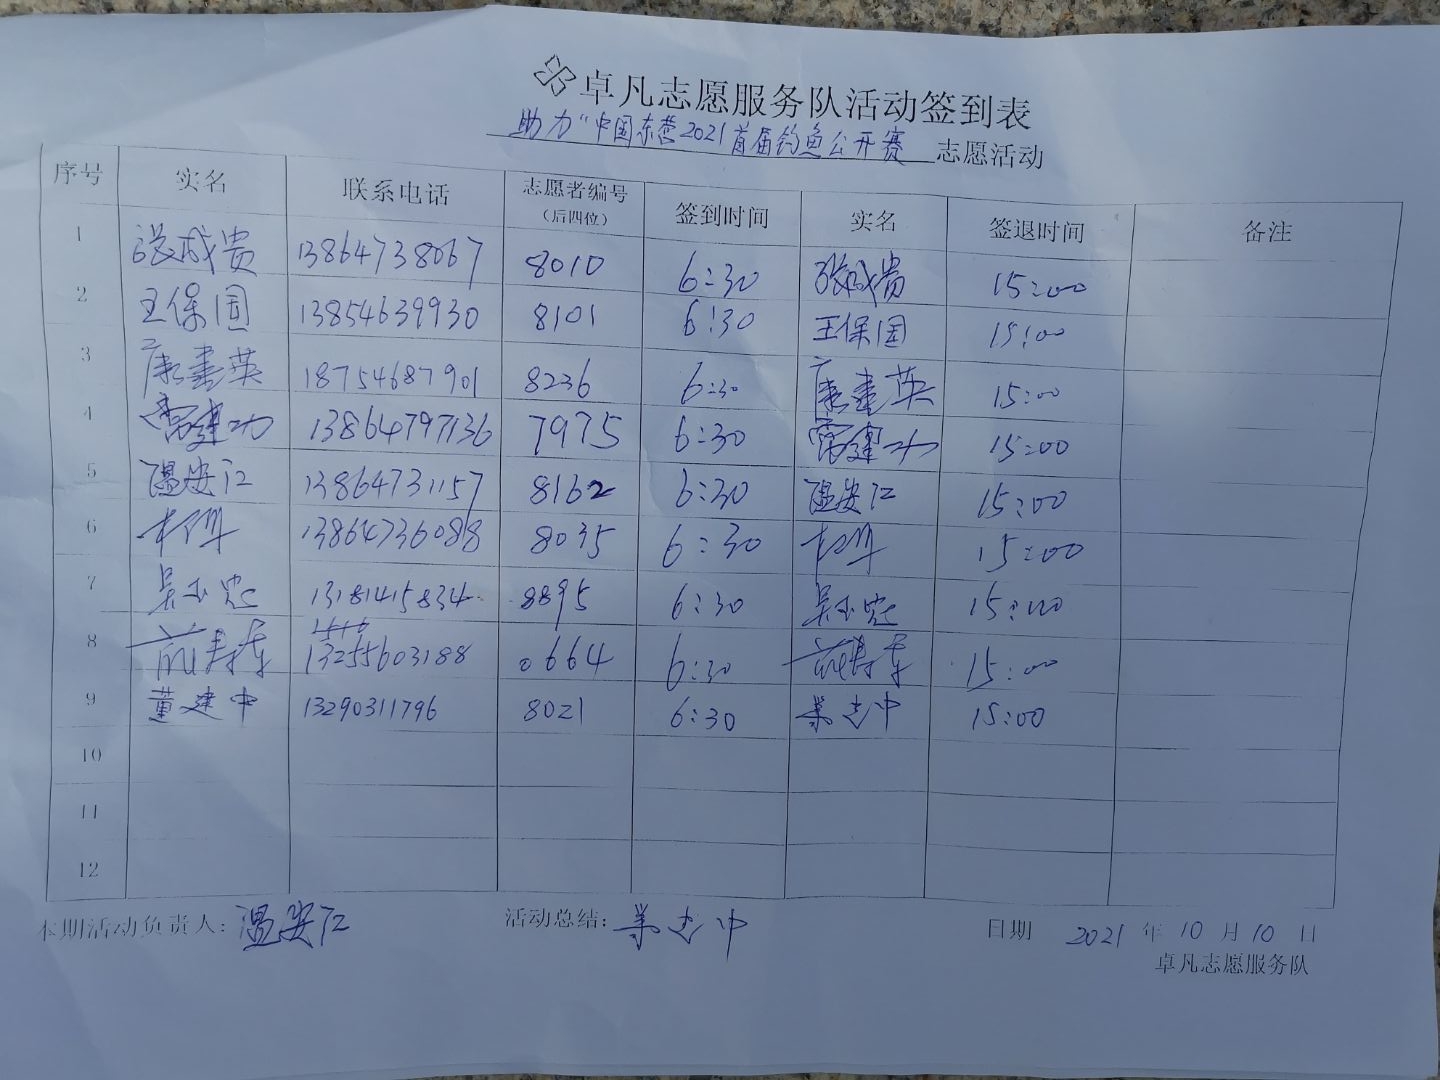 卓凡志愿服务队活动签到表
助力"中国东营2021首届钓鱼公开赛 志愿活动
序号 实名 联系电话 志愿者编号（后四位） 签到时间 实名 签退时间 备注
1 张成贵 13864738067 8010 6:30 张成贵 15:00
2 王保国 13854639930 8101 6:30 王保国 15:00
3 康素英 18754687901 8236 6:30 康素英 15:00
4 雷建功 13864797136 7975 6:30 雷建功 15:00
5 温安江 13864731157 8162 6:30 温安江 15:00
6 13864736088 8035 6:30 15:00
7 吴玉忠 13181415834 8895 6:30 吴玉忠 15:00
8 13255603188 0664 6:30 15:00
9 董建中 13290311796 8021 6:30 15:00
10
11
12
本期活动负责人: 温安江 活动总结: 日期 2021 年 10 月 10 日
卓凡志愿服务队